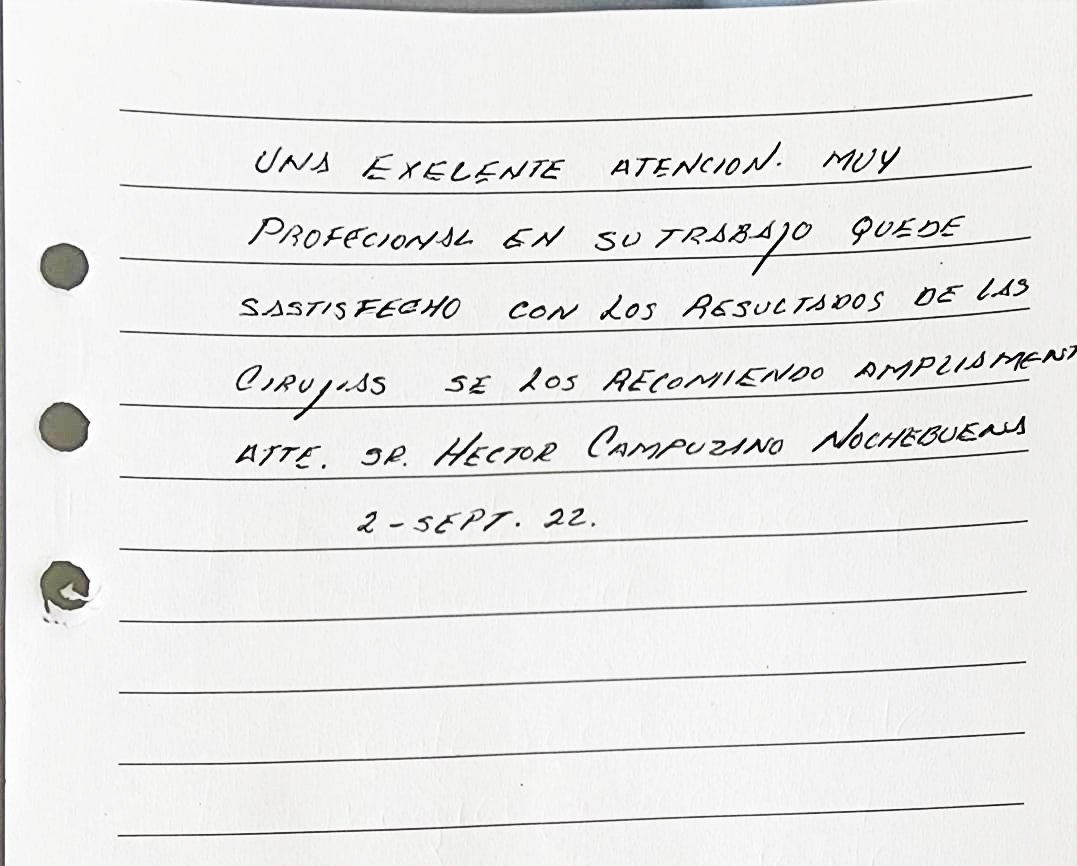 UNA EXELENTE ATENCION. MUY
PROFECIONAL EN SU TRABAJO QUEDE
SASTISFECHO CON LOS RESULTADOS DE LAS
CIRUJIAS SE LOS RECOMIENDO AMPLIAMENT
ATTE. SR. HECTOR CAMPUZANO NOCHEBUENA
2-SEPT. 22.